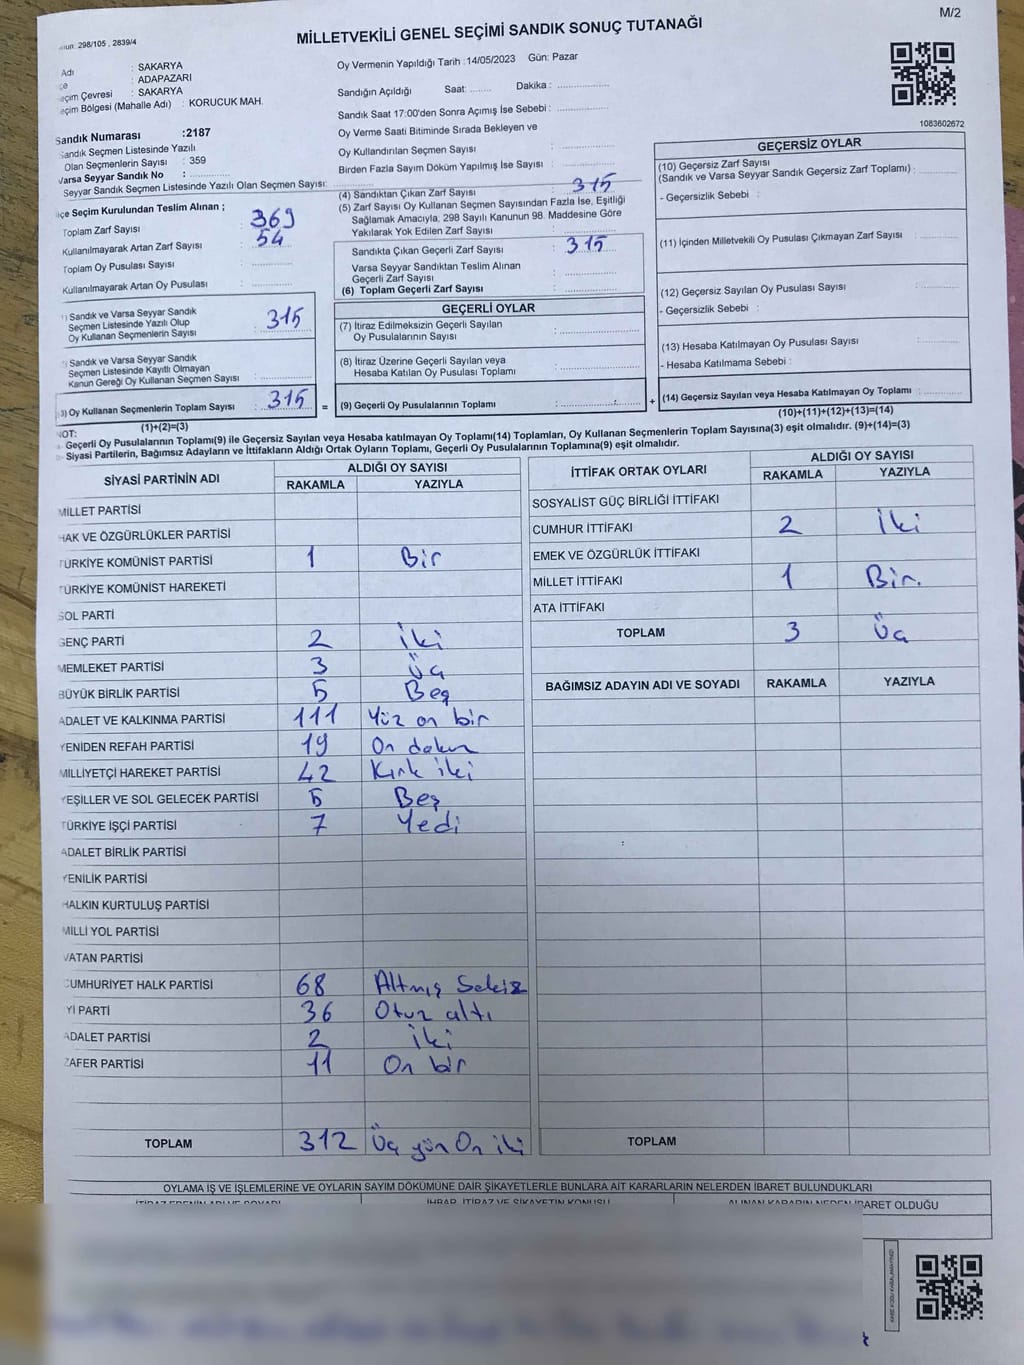 M/2
MİLLETVEKİLİ GENEL SEÇİMİ SANDIK SONUÇ TUTANAĞI
298/105 , 2839/4
Adı : SAKARYA
: ADAPAZARI
eçim Çevresi : SAKARYA
eçim Bölgesi (Mahalle Adı) : KORUCUK MAH.
Sandık Numarası :2187
Sandık Seçmen Listesinde Yazılı
Olan Seçmenlerin Sayısı : 359
Varsa Seyyar Sandık No :
Seyyar Sandık Seçmen Listesinde Yazılı Olan Seçmen Sayısı:
lçe Seçim Kurulundan Teslim Alınan ;
Toplam Zarf Sayısı : 369
Kullanılmayarak Artan Zarf Sayısı : 54
Toplam Oy Pusulası Sayısı :
Kullanılmayarak Artan Oy Pusulası :
1) Sandık ve Varsa Seyyar Sandık
Seçmen Listesinde Yazılı Olup
Oy Kullanan Seçmenlerin Sayısı : 315
Sandık ve Varsa Seyyar Sandık
Seçmen Listesinde Kayıtlı Olmayan
Kanun Gereği Oy Kullanan Seçmen Sayısı :
3) Oy Kullanan Seçmenlerin Toplam Sayısı : 315
(1)+(2)=(3)
Oy Vermenin Yapıldığı Tarih :14/05/2023 Gün: Pazar
Sandığın Açıldığı Saat: ........ Dakika : ................
Sandık Saat 17:00'den Sonra Açımış İse Sebebi : ................
Oy Verme Saati Bitiminde Sırada Bekleyen ve
Oy Kullandırılan Seçmen Sayısı :
Birden Fazla Sayım Döküm Yapılmış İse Sayısı :
(4) Sandıktan Çıkan Zarf Sayısı : 315
(5) Zarf Sayısı Oy Kullanan Seçmen Sayısından Fazla İse, Eşitliği
Sağlamak Amacıyla, 298 Sayılı Kanunun 98. Maddesine Göre
Yakılarak Yok Edilen Zarf Sayısı :
Sandıkta Çıkan Geçerli Zarf Sayısı : 315
Varsa Seyyar Sandıktan Teslim Alınan
Geçerli Zarf Sayısı :
(6) Toplam Geçerli Zarf Sayısı :
GEÇERLİ OYLAR
(7) İtiraz Edilmeksizin Geçerli Sayılan
Oy Pusulalarının Sayısı :
(8) İtiraz Üzerine Geçerli Sayılan veya
Hesaba Katılan Oy Pusulası Toplamı :
= (9) Geçerli Oy Pusulalarının Toplamı : +
1083602672
GEÇERSİZ OYLAR
(10) Geçersiz Zarf Sayısı
(Sandık ve Varsa Seyyar Sandık Geçersiz Zarf Toplamı) :
- Geçersizlik Sebebi :
(11) İçinden Milletvekili Oy Pusulası Çıkmayan Zarf Sayısı :
(12) Geçersiz Sayılan Oy Pusulası Sayısı :
- Geçersizlik Sebebi :
(13) Hesaba Katılmayan Oy Pusulası Sayısı :
- Hesaba Katılmama Sebebi :
(14) Geçersiz Sayılan veya Hesaba Katılmayan Oy Toplamı :
(10)+(11)+(12)+(13)=(14)
NOT:
Geçerli Oy Pusulalarının Toplamı(9) ile Geçersiz Sayılan veya Hesaba katılmayan Oy Toplamı(14) Toplamları, Oy Kullanan Seçmenlerin Toplam Sayısına(3) eşit olmalıdır. (9)+(14)=(3)
Siyasi Partilerin, Bağımsız Adayların ve İttifakların Aldığı Ortak Oyların Toplamı, Geçerli Oy Pusulalarının Toplamına(9) eşit olmalıdır.
SİYASİ PARTİNİN ADI ALDIĞI OY SAYISI
RAKAMLA YAZIYLA
MİLLET PARTİSİ
HAK VE ÖZGÜRLÜKLER PARTİSİ
TÜRKİYE KOMÜNİST PARTİSİ 1 Bir
TÜRKİYE KOMÜNİST HAREKETİ
SOL PARTİ
GENÇ PARTİ 2 İki
MEMLEKET PARTİSİ 3 Üç
BÜYÜK BİRLİK PARTİSİ 5 Beş
ADALET VE KALKINMA PARTİSİ 111 Yüz on bir
YENİDEN REFAH PARTİSİ 19 On dokuz
MİLLİYETÇİ HAREKET PARTİSİ 42 Kırk iki
YEŞİLLER VE SOL GELECEK PARTİSİ 5 Beş
TÜRKİYE İŞÇİ PARTİSİ 7 Yedi
ADALET BİRLİK PARTİSİ
YENİLİK PARTİSİ
HALKIN KURTULUŞ PARTİSİ
MİLLİ YOL PARTİSİ
VATAN PARTİSİ
CUMHURİYET HALK PARTİSİ 68 Altmış Sekiz
İYİ PARTİ 36 Otuz altı
ADALET PARTİSİ 2 İki
ZAFER PARTİSİ 11 On bir
TOPLAM 312 Üç yüz On iki
İTTİFAK ORTAK OYLARI ALDIĞI OY SAYISI
RAKAMLA YAZIYLA
SOSYALİST GÜÇ BİRLİĞİ İTTİFAKI
CUMHUR İTTİFAKI 2 İki
EMEK VE ÖZGÜRLÜK İTTİFAKI
MİLLET İTTİFAKI 1 Bir.
ATA İTTİFAKI
TOPLAM 3 Üç
BAĞIMSIZ ADAYIN ADI VE SOYADI RAKAMLA YAZIYLA
TOPLAM
OYLAMA İŞ VE İŞLEMLERİNE VE OYLARIN SAYIM DÖKÜMÜNE DAİR ŞİKAYETLERLE BUNLARA AİT KARARLARIN NELERDEN İBARET BULUNDUKLARI
İTİRAZ EDENİN ADI VE SOYADI İHBAR, İTİRAZ VE ŞİKAYETİN KONUSU ALINAN KARARIN NEDEN İBARET OLDUĞU